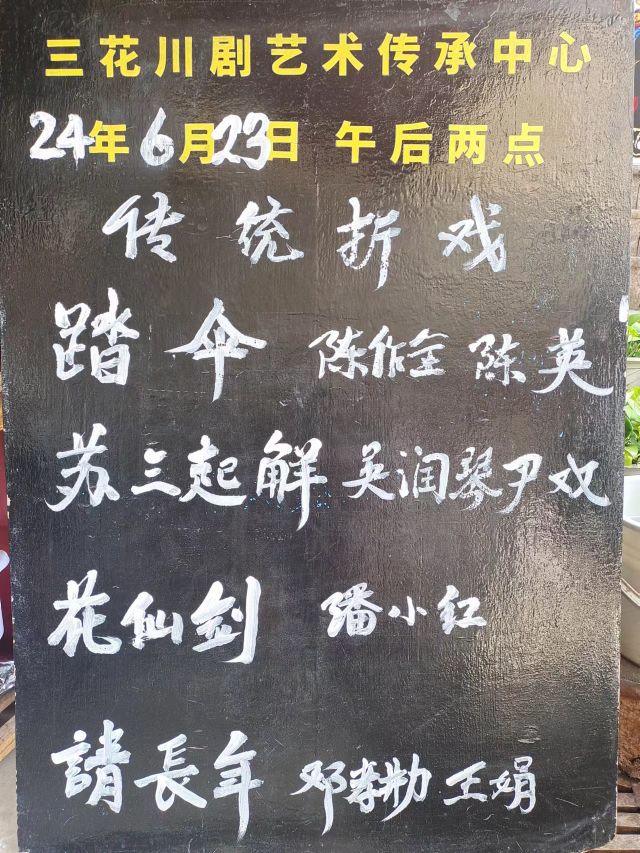 三花川剧艺术传承中心
24年6月23日 午后两点
传统折戏
踏伞 陈作全 陈英
苏三起解 吴润琴 尹戏
花仙剑 潘小红
請長年 邓孝勋 王娟